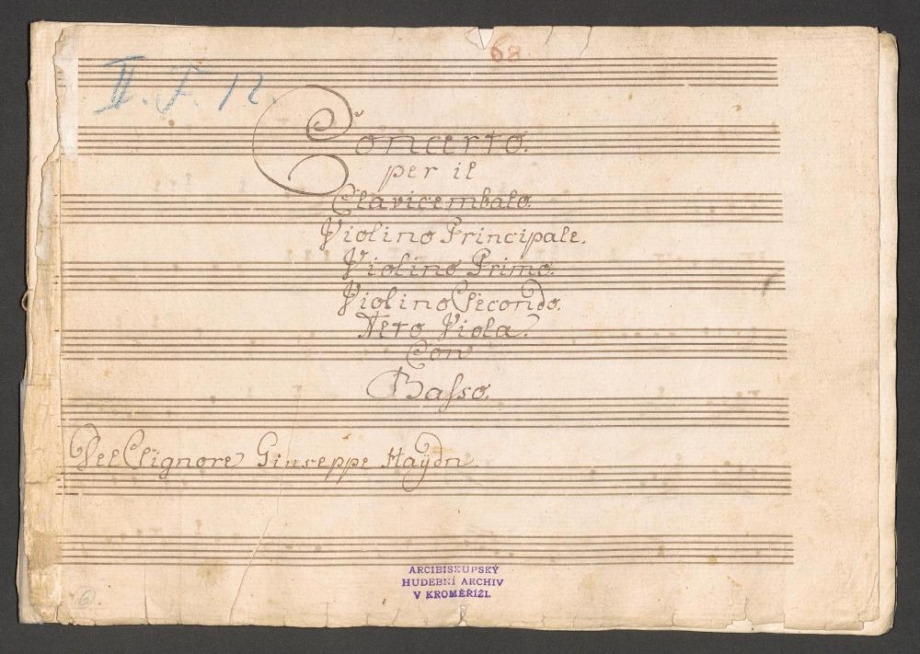 68.
II. F. 12.
Concerto.
per il
Clavicembalo.
Violino Principale.
Violino Primo.
Violino Secondo.
Nero Viola.
Con
Basso.
Del Signore Giuseppe Haÿdn
ARCIBISKUPSKÝ
HUDEBNÍ ARCHIV
V KROMĚŘÍŽI.
6.